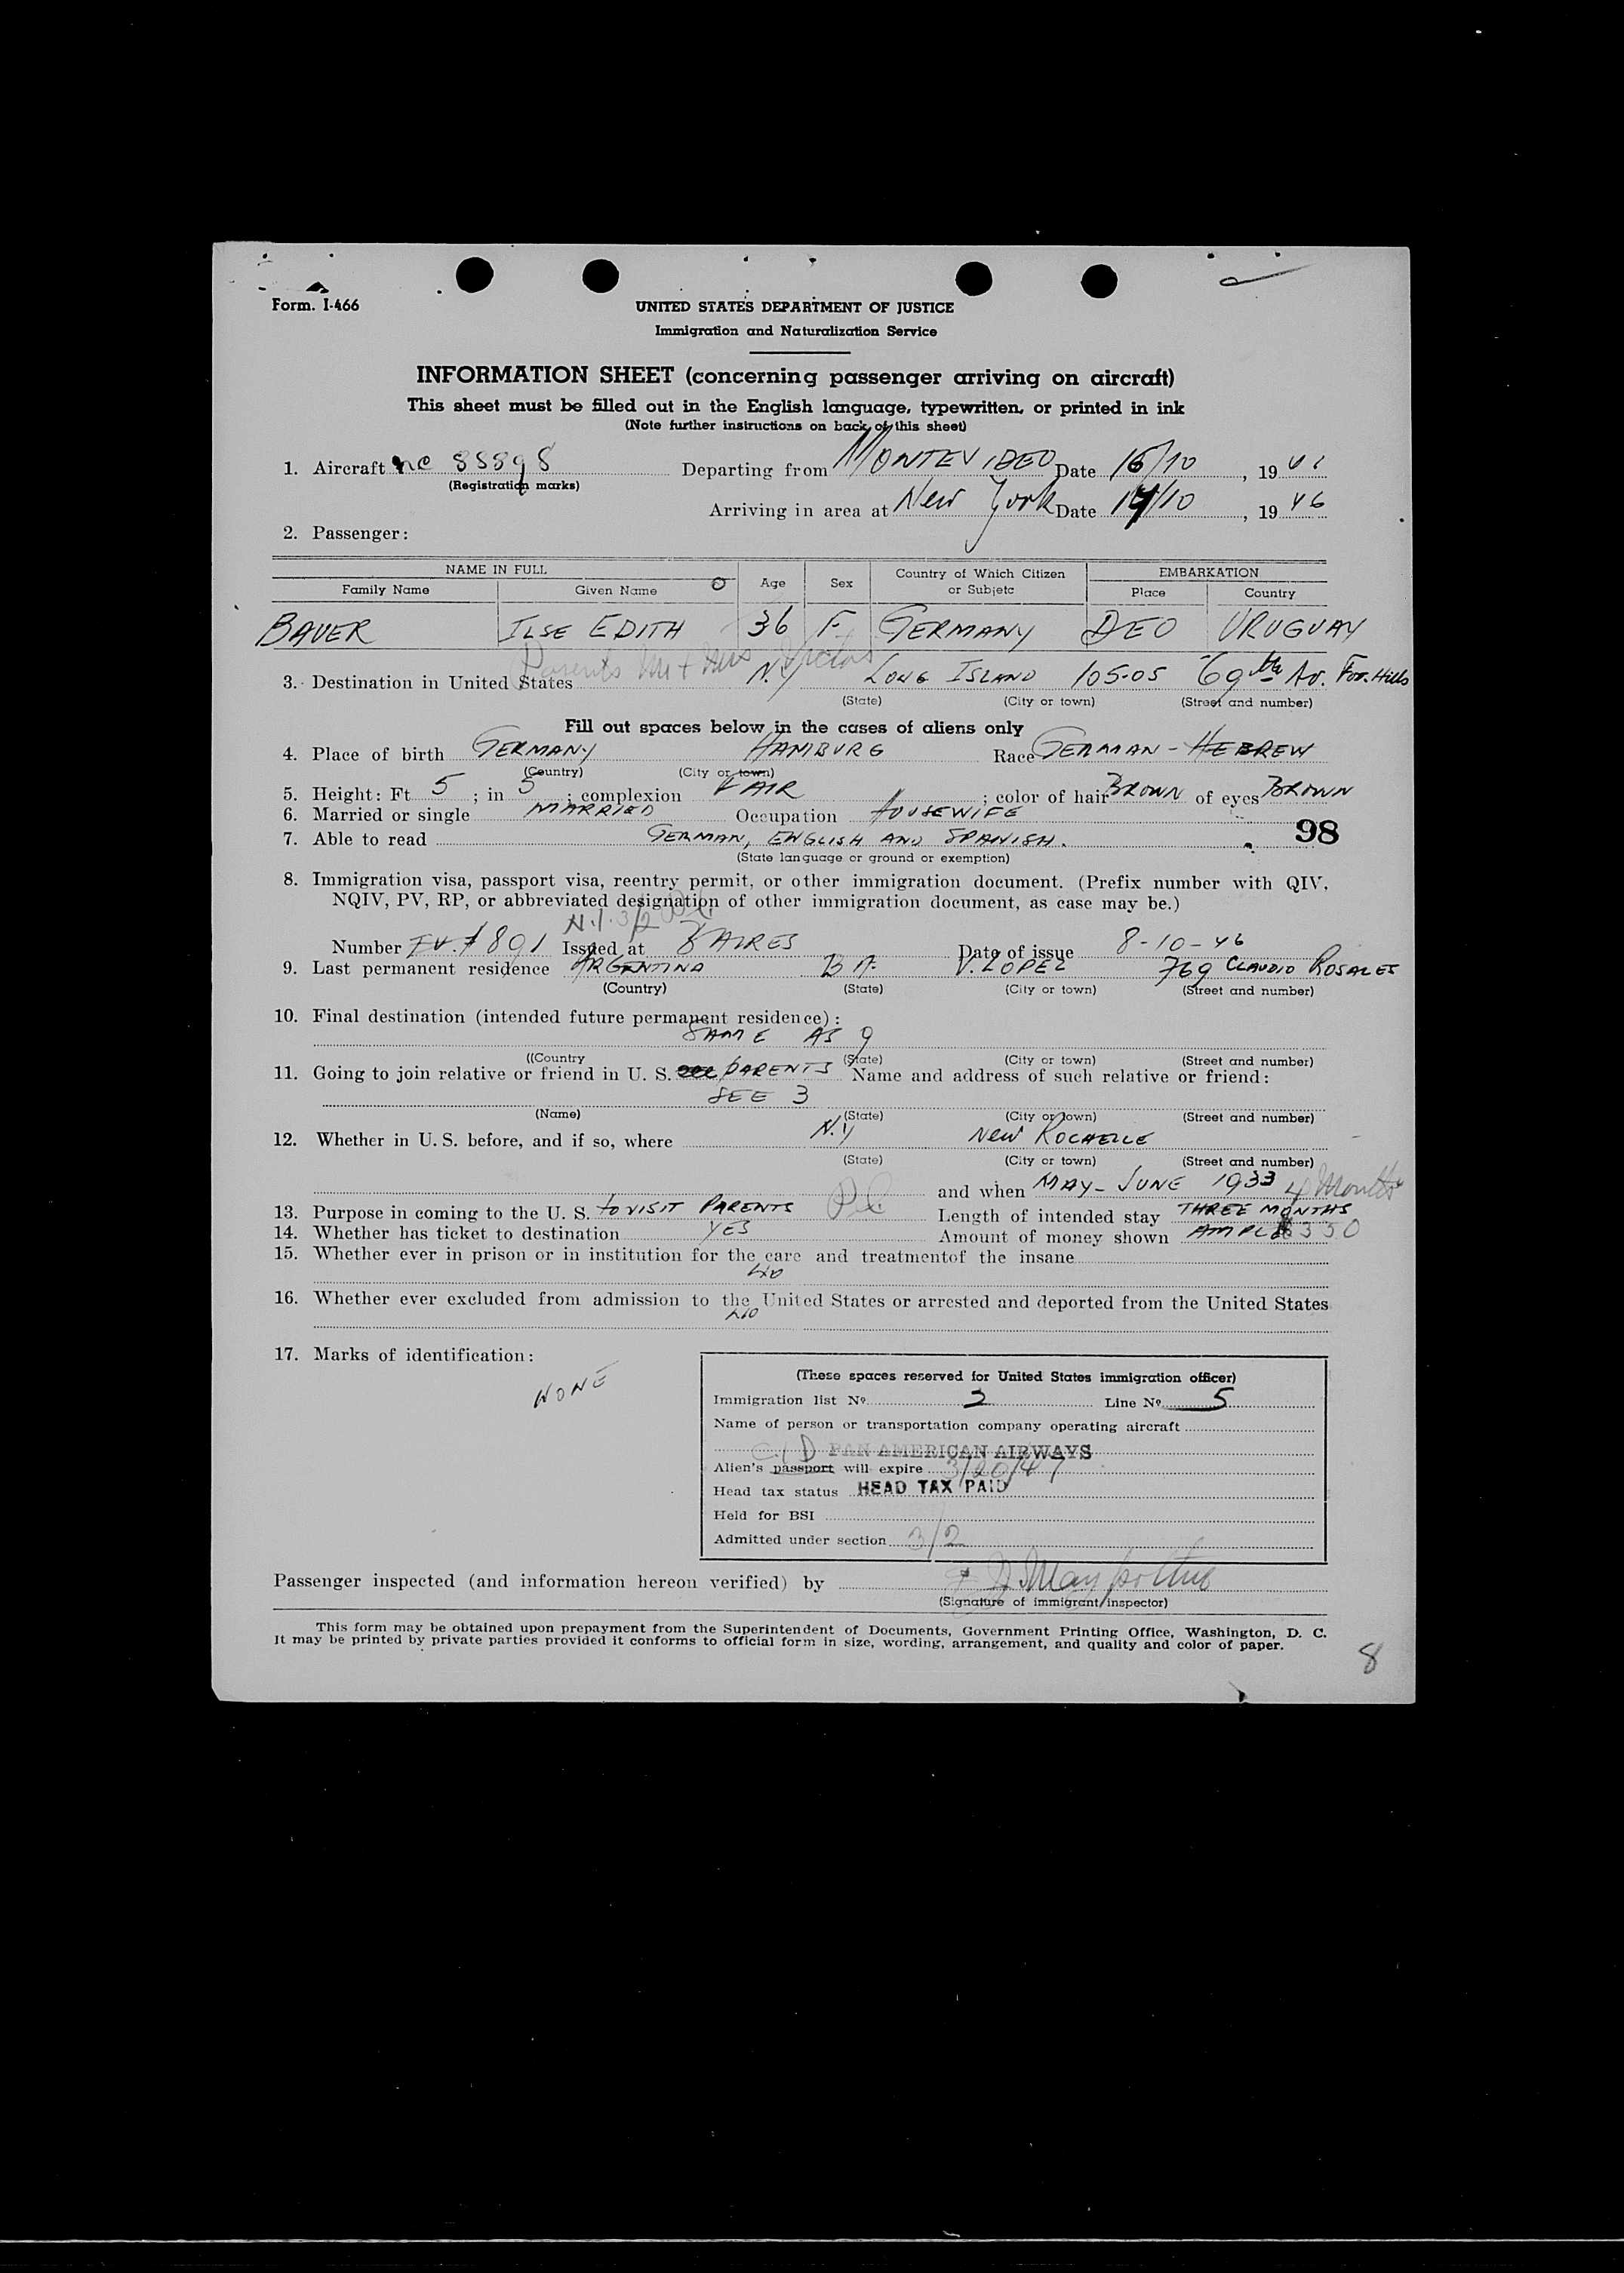 Form. I-466
UNITED STATES DEPARTMENT OF JUSTICE
Immigration and Naturalization Service
INFORMATION SHEET (concerning passenger arriving on aircraft)
This sheet must be filled out in the English language, typewritten, or printed in ink
(Note further instructions on back of this sheet)
1. Aircraft NC 88898 Departing from MONTEVIDEO Date 16/10, 19
(Registration marks)
Arriving in area at New York Date 17/10, 19 46
2. Passenger:
NAME IN FULL Age Sex Country of Which Citizen or Subjetc EMBARKATION
Family Name Given Name Place Country
BAUER ILSE EDITH 36 F GERMANY DEO URUGUAY
Parents Mr + Mrs
3. Destination in United States N.Y LONG ISLAND 105-05 69th Av. For. Hills
(State) (City or town) (Street and number)
Fill out spaces below in the cases of aliens only
4. Place of birth GERMANY HAMBURG Race GERMAN - HEBREW
(Country) (City or town)
5. Height: Ft 5 ; in 5 ; complexion FAIR ; color of hair BROWN of eyes BROWN
6. Married or single MARRIED Occupation HOUSEWIFE
7. Able to read GERMAN, ENGLISH AND SPANISH. 98
(State language or ground or exemption)
8. Immigration visa, passport visa, reentry permit, or other immigration document. (Prefix number with QIV,
NQIV, PV, RP, or abbreviated designation of other immigration document, as case may be.)
N.I. 3/2
Number 891 Issued at B AIRES Date of issue 8-10-46
9. Last permanent residence ARGENTINA B A. V. LOPEZ 769 CLAUDIO ROSALES
(Country) (State) (City or town) (Street and number)
10. Final destination (intended future permanent residence):
SAME AS 9
((Country (State) (City or town) (Street and number)
11. Going to join relative or friend in U. S. PARENTS Name and address of such relative or friend:
SEE 3
(Name) (State) (City or town) (Street and number)
12. Whether in U. S. before, and if so, where N.Y New ROCHELLE
(State) (City or town) (Street and number)
and when MAY - JUNE 1933 4 Months
13. Purpose in coming to the U. S. to VISIT PARENTS Length of intended stay THREE MONTHS
14. Whether has ticket to destination YES Amount of money shown AMPLE $350
15. Whether ever in prison or in institution for the care and treatmentof the insane
NO
16. Whether ever excluded from admission to the United States or arrested and deported from the United States
NO
17. Marks of identification:
NONE
(These spaces reserved for United States immigration officer)
Immigration list Nº 2 Line Nº 5
Name of person or transportation company operating aircraft
C.I.D PAN AMERICAN AIRWAYS
Alien's passport will expire 3/20/47
Head tax status HEAD TAX PAID
Held for BSI
Admitted under section 3/2
Passenger inspected (and information hereon verified) by
(Signature of immigrant inspector)
This form may be obtained upon prepayment from the Superintendent of Documents, Government Printing Office, Washington, D. C.
It may be printed by private parties provided it conforms to official form in size, wording, arrangement, and quality and color of paper.
8